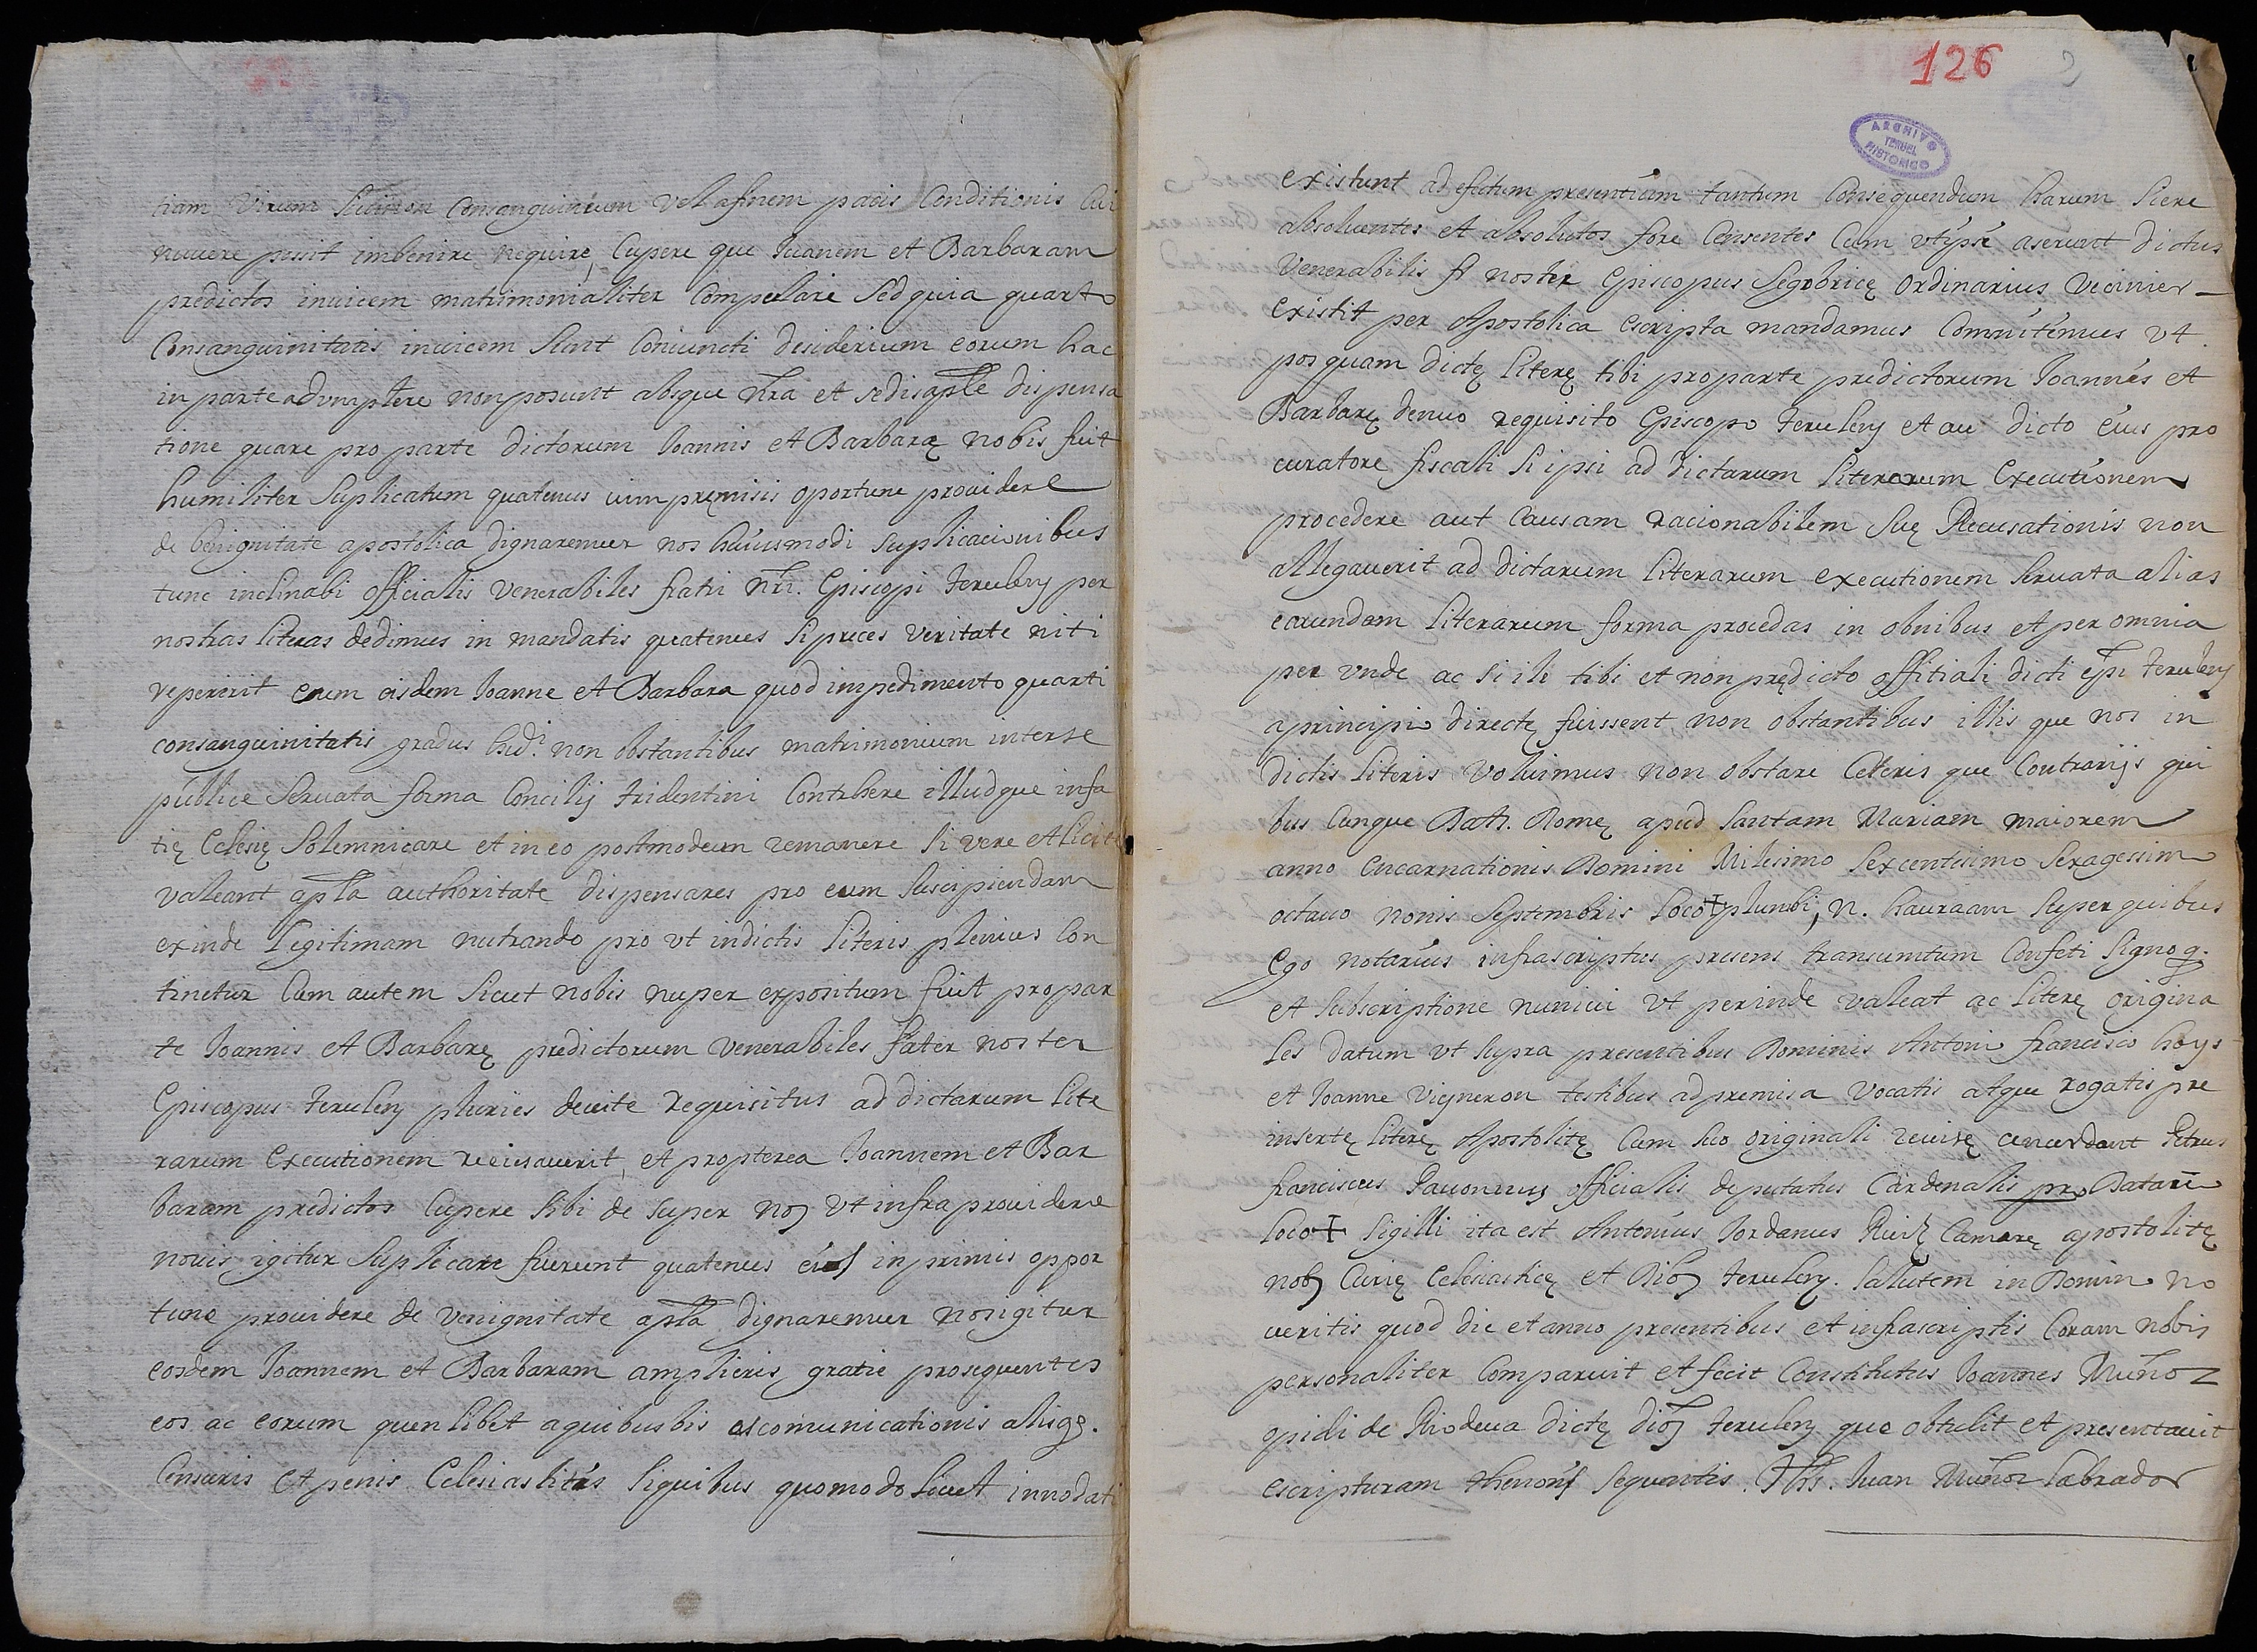 ciam Virum sivi non Consanguineum vel afinem paris Conditionis Cui
nuvere posit imbenire nequire, Cupere que Juanem et Barbaram
predictos invicem matrimonialiter Compulari Sed quia quarto
Consanguinitatis invicem Sunt Coniuncti desiderium eorum hac
in parte adumplere non posunt absque nr̃a et sedis aplẽ dispensa
tione quare pro parte dictorum Joannis et Barbarę nobis fuit
humiliter Suplicatum quatenus in premisis oportune providere
de benignitate apostolica dignaremur nos huiusmodi Suplicacionibus
tunc inclinabi officialis Venerabiles fratri nr̃i. Episcopi terulen̄ per
nostras literas dedimus in mandatis quatenus si preces veritate niti
reperirit cum eisdem Joanne et Barbara quod impedimento quarti
consanguinitatis gradus hudi non obstantibus matrimonium inter se
publice Servata forma Concilij tridentini Contrhere illudque infa
tię Eclesię Solemnicare et in eo postmodeum remanere Si vere et licite
valeant aplã authoritate dispensares pro eum Suscipiendam
exinde Legitimam nutrando pro ut in dictis literis plenius Con
tinetur Cum autem Sicut nobis nuper expositum fuit propar
te Joannis et Barbarę predictorum venerabiles frater noster
Episcopus terulen̄ pluries devite requisitus ad dictarum lite
rarum Executionem recusaverit, et propterea Joannem et Bar
baram predictos Cupere Sibi de super nos ut infra providere
novis igitur Suplicare fuerunt quatenus eis inprimis oppor
tune providere de venignitate aplã dignaremur nos igitur
eosdem Joannem et Barbaram amplieris gratie prosequentes
eos ac eorum quenlibet a quibusbis escomunicationis alisq̃.
Censuris et penis Eclesiasticis Siquibus quomodo livet innodati
126
2
ARCHIVO
TERUEL
HISTORICO
existunt ad efectum presentiam tantum Consequendum harum Siere
absolventes et absolutos fore Censentes Cum ut ipsi aserunt dictus
Venerabilis fr̃ noster Episcopus Segobricę Ordinarius Vicinior
existit per Apostolica escripta mandamus Comitemus ut
posquam dictę literę tibi pro parte predictorum Joannes et
Barbarę denuo requisito Episcopo terulen̄ et au dicto eius pro
curatore fiscali Si ipsi ad dictarum literarum Executionem
procedere aut Causam racionabilem Suę Recusationis non
allegaverit ad dictarum literarum executionem Servata alias
earundem literarum forma procedas in obnibus et per omnia
per unde ac si ili tibi et non prędicto offitiali dicti epĩ terulen̄
a principio directę fuissent, non obstantibus illis que nos in
dictis literis Voluimus non obstare Ceteris que Contrarijs qui
bus Cunque Datt. Romę apud Santam Mariam maiorem
anno encarnationis Domini Milesimo Sexcentesimo Sexagessimo
octavo nonis Septembris loco + plunbi, N. hauraam Super quibus
Ego notarius infrascriptus presens transumtum Confeti Signo q.
et Subscriptione munivi ut perinde valeat ac literę origina
les datum ut Supra presentibus Dominis Antonio francisco hoys
et Joanne Vigneron testibus ad premisa vocatis atque rogatis pre
insertę literę Apostolitę Cum Suo originali revisę concordant Petrus
franciscus Pavonius officialis deputatus Cardenalis pro Datario
loco + Sigilli ita est Antonius Jordanus Ruiz Camarę apostolitę
not Curię Eclesiasticę et Dioc̃ terulen̄. Salutem in Domino no
veritis quod die et anno presentibus et infrascriptis Coram nobis
personaliter Comparuit et fecit Constitutus Joannes Muñoz
opidi de Riodeva dictę dioc̃ terulen̄ que obtulit et presentavit
escripturam thenoris sequentis. Jhs. Juan Muñoz labrador